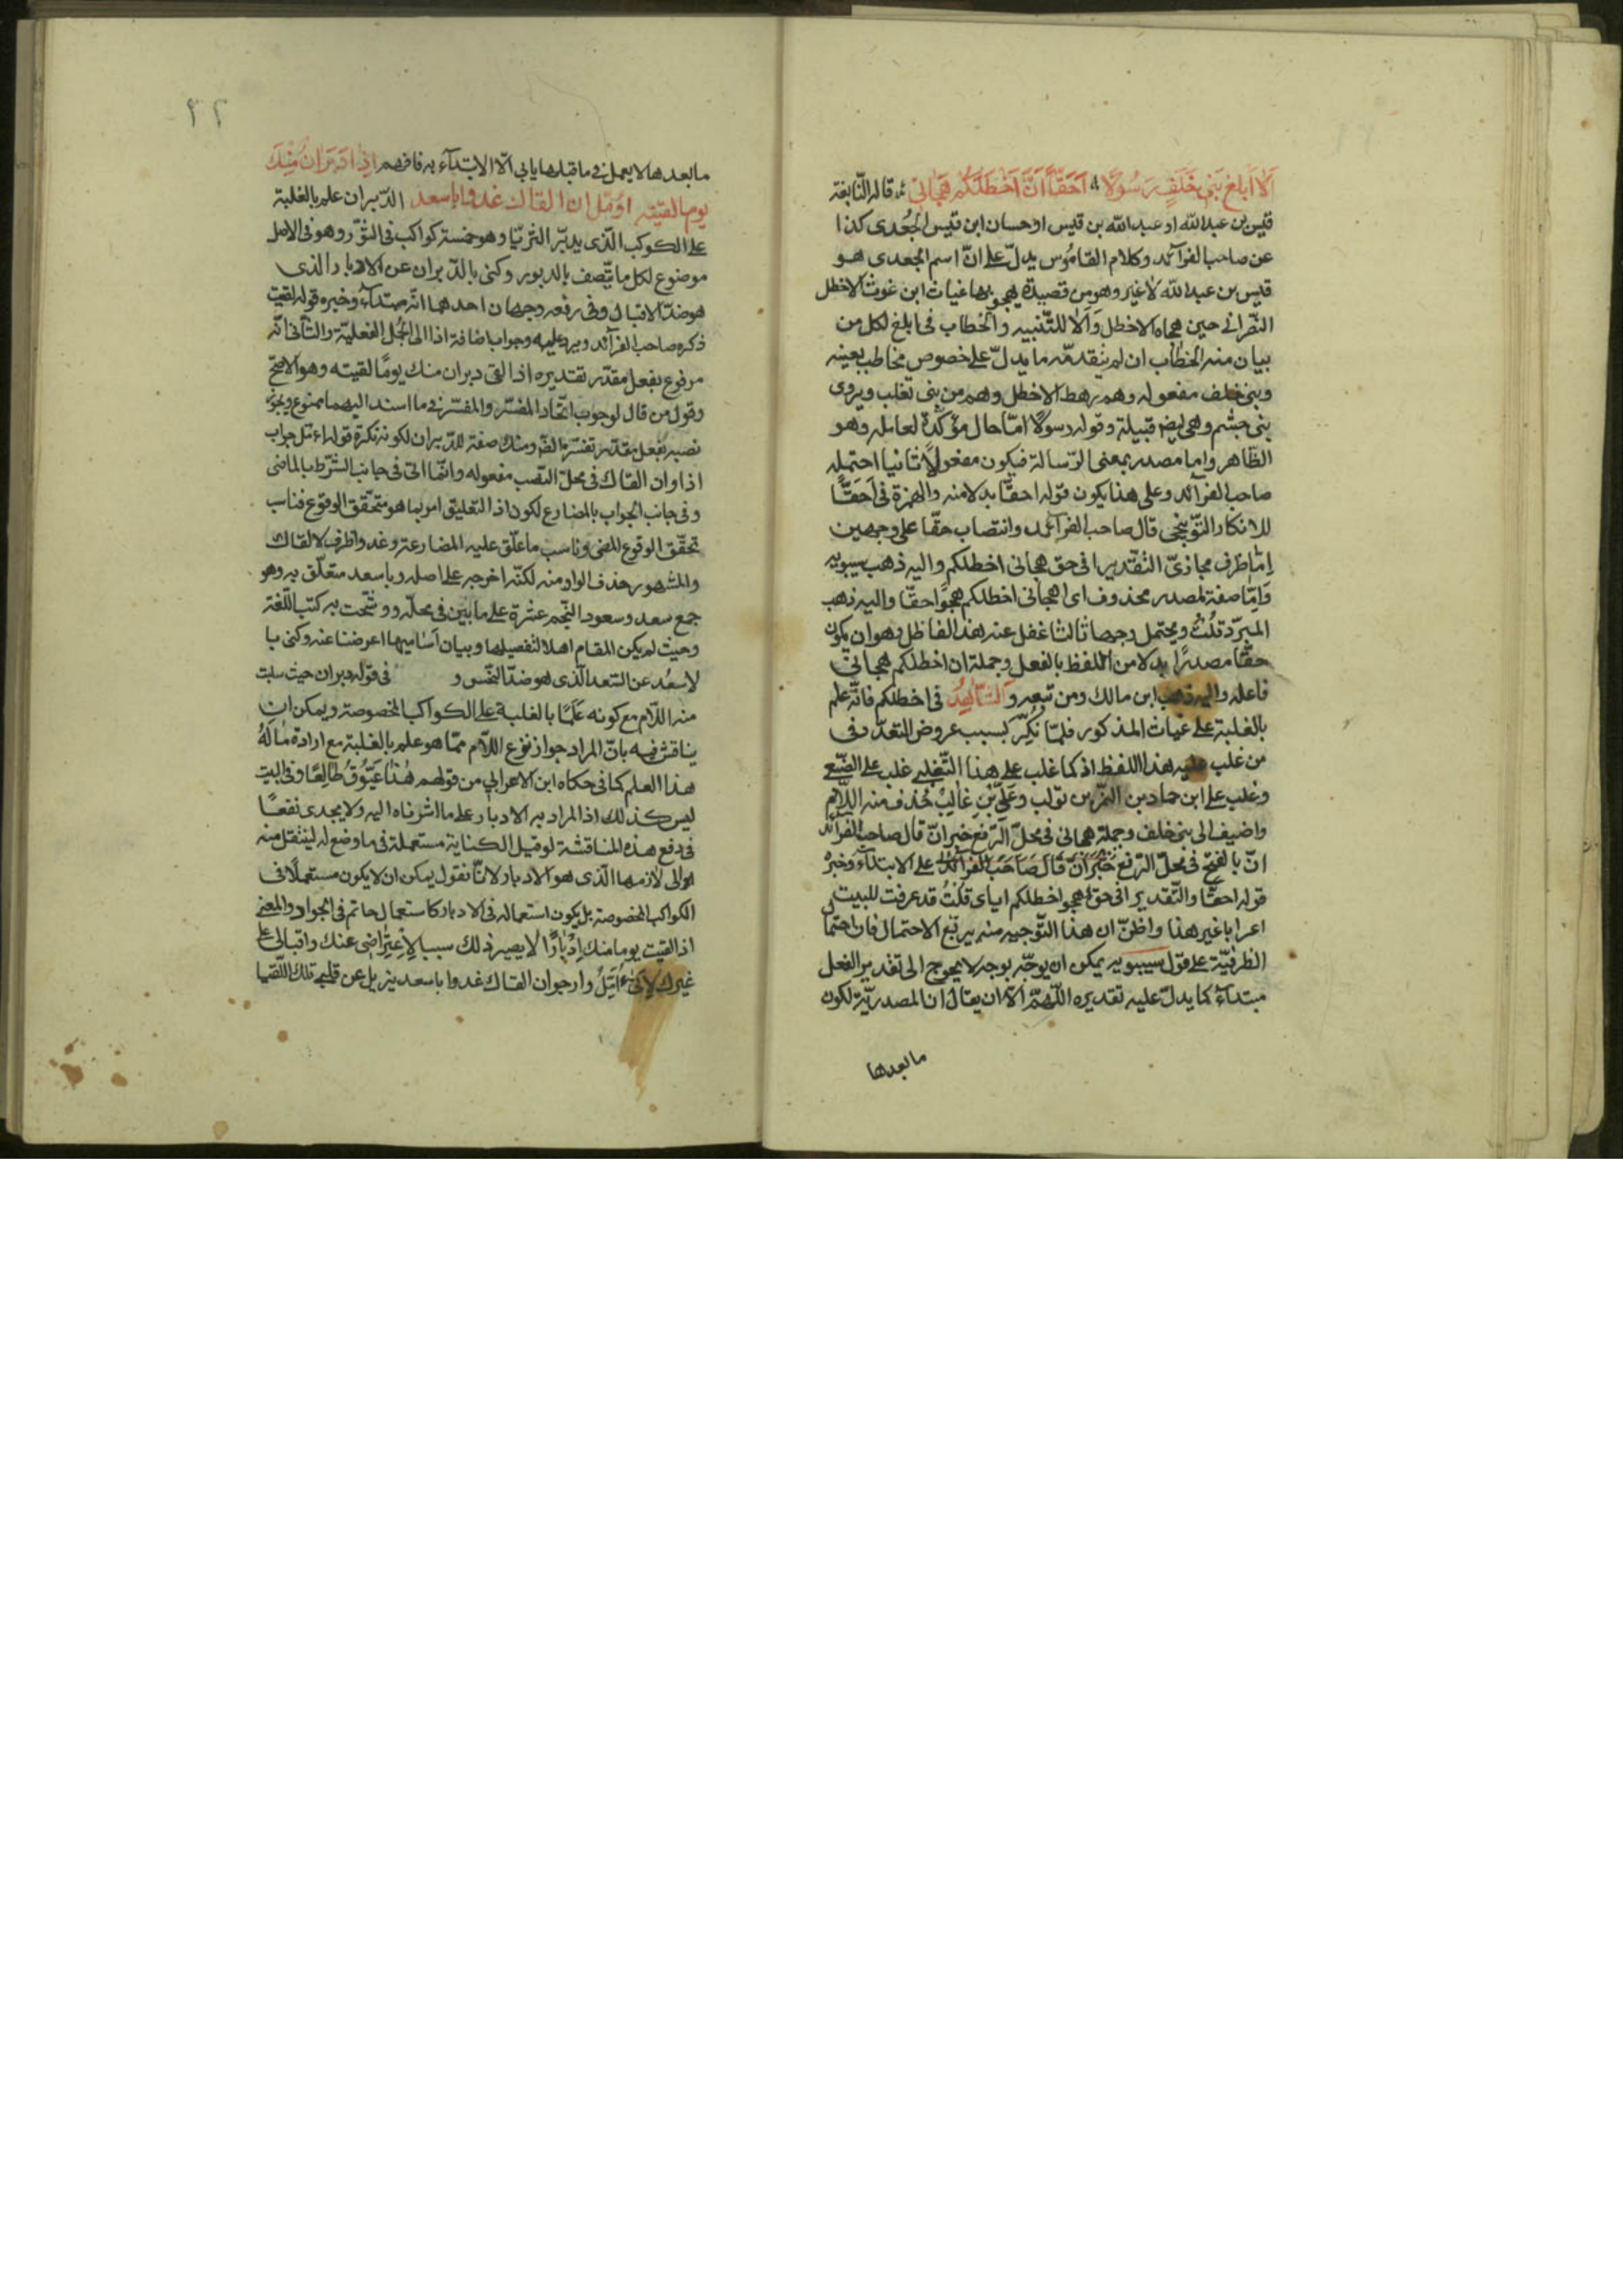 الا ابلغ بنى خلف رسولا احقّا انّ اخطلكم هجانى قاله النّابغة
قيس بن عبد الله او عبد الله بن قيس او حسان ابن قيس الجعدى كذا
عن صاحب الفرآئد وكلام القاموس يدلّ على انّ اسم الجعدى هو
قيس بن عبد الله لا غير وهو من قصيدة يهجو بها غياث ابن غوث الاخطل
النّصرانى حين هجاه الاخطل وَالا للتّنبيه والخطاب فى ابلغ لكل من
بيان منه الخطاب ان لم يتقدمّه ما يدلّ على خصوص مخاطب بعينه
وبنى خلف مفعوله وهم رهط الاخطل وهم من بنى تغلب ويروى
بنى جشم وهى ايض قبيلة وقوله رسولًا امّا حال مؤكّدة لعامله وهو
الظّاهر واما مصدر بمعنى الرّسالة فيكون مفعولًا ثانيا احتمله
صاحب الفرآئد وعلى هذا يكون قوله احقّا بدلا منه والهمزة فى احَقّا
للانكار التّوبيخى قال صاحب الفرآئد وانتصاب حقّا على وجهين
امّا ظرف مجازىّ التّقدير افى حق هجانى اخطلكم واليه ذهب سيبويه
وَامّا صفة لمصدر محذوف اى اهجانى اخطلكم هجوًا حقّا واليه ذهب
المبرّد قلتُ ويحتمل وجها ثالثا غفل عنه هذا الفاضل وهو ان يكون
حقّا مصدرًا بدلا من اللفظ بالفعل وجملة ان اخطلكم هجانى
فاعله واليه ذهب ابن مالك ومن تبعه والشّاهد فى اخطلكم فانّه علم
بالغلبة على غياث المذكور فلمّا نُكِّرَ بسبب عروض التعدّد فى
من غلب عليه هذا اللفظ اذ كما غلب على هذا التّغلبى غلب على الضّبعى
وغلب على ابن حماد بن النمر بن تولب وعَلى بْنِ غالِبٍ حُذف منه اللّام
واضيف الى بنى خلف وجملة هجانى فى محلّ الرّفع خبر انّ قال صاحب الفرآئد
انّ بالفتح فى محلّ الرّفع خبر انّ قال صاحب الفرآئد على الابتداء وخبره
قوله احقّا والتّقدير افى حق هجو اخطلكم اياى قلتُ قد عرفت للبيت
اعرابا غير هذا واظنّ ان هذا التّوجيه منه يرفع الاحتمال فان احتما
الظرفيّة على قول سيبويه يمكن ان يوجّه بوجه لا يحوج الى تقدير الفعل
مبتدآء كما يدلّ عليه تقديره اللّهمّ الّا ان يقال ان المصدريّة لكون
ما بعدها
٢٢
ما بعدها لا يعمل فى ما قبلها يابى الّا الابتدآء به فافهم اذا دَبَرانٌ مِنْكَ
يوما لقيته اؤمّل ان القاك غدوا باسعد الدّبران علم بالغلبة
على الكوكب الّذى يدبّر الثريّا وهو خمسة كواكب فى الثّور وهو فى الاصل
موضوع لكل ما يتّصف بالدبور وكنى بالدّبران عن الادبار الذى
هو ضدّ الاقبال وفى رفعه وجهان احدهما انّه مبتدآء وخبره قوله لقيت
ذكره صاحب الفرآئد ويرد عليه وجواب اضافة اذا الى الجُمل الفعليّة والثّانى انّه
مرفوع بفعل مقدّر تقديره اذا لقى دبران منك يومًا لقيته وهو الاصحّ
وقول من قال لوجوب اتّحاد المفسَّر والمفسِّر فى ما اسند اليهما ممنوع ويجوز
نصبه بفعل مقدّر ومنك صفة للدّبران لكونه نكرة قوله اؤمّل جواب
اذا وان القاك فى محلّ النّصب مفعوله وانّما اتى فى جانب الشّرط بالماضى
وفى جانب الجواب بالمضارع لكون اذا لتعليق امر بما هو متحقّق الوقوع فناسب
تحقّق الوقوع المضى وناسب ما علّق عليه المضارعة وغدوا ظرف لالقاك
والمشهور حذف الواو منه لكنّه اخرجه على اصله وباسعد متعلّق به وهو
جمع سعد وسعود النّجم عشرة على ما بيّن فى محلّه ووشّحت به كتب اللّغة
وحيث لم يكن المقام اهلا لتفصيلها وبيان اساميها اعرضنا عنه وكنى با
لاسعُد عن السّعد الّذى هو ضدّ النّحس و فى قوله دبران حيث سلبت
منه اللّام مع كونه عَلَمًا بالغلبة على الكواكب المخصوصة ويمكن ان
يناقش فيه بانّ المراد جواز نزع اللّام ممّا هو علم بالغلبة مع ارادة ما لَهُ
هذا العلم كما فى حكاه ابن الاعرابى من قولهم هذا عَيّوُقٌ طالِعًا وفى البيت
ليس كذلك اذ المراد به الادبار على ما اشرناه اليه ولا يجدى نفعًا
فى دفع هذه المناقشة لو قيل الكناية مستعملة فى ما وضع له لينتقل منه
الى لازمها الّذى هو الادبار لانّا نقول يمكن ان لا يكون مستعملًا فى
الكواكب المخصوصة بل يكون استعماله فى الادبار كاستعمال حاتم فى الجواد والمعنى
اذا لقيت يوما منك اِدْبارًا لا يصير ذلك سببا لِاعْتِراضى عنك واقبالى على
غيرك لِانّى اُؤمّلُ وارجو ان القاك غدوا باسعد يزيل عن قلبى تلك اللّقيا